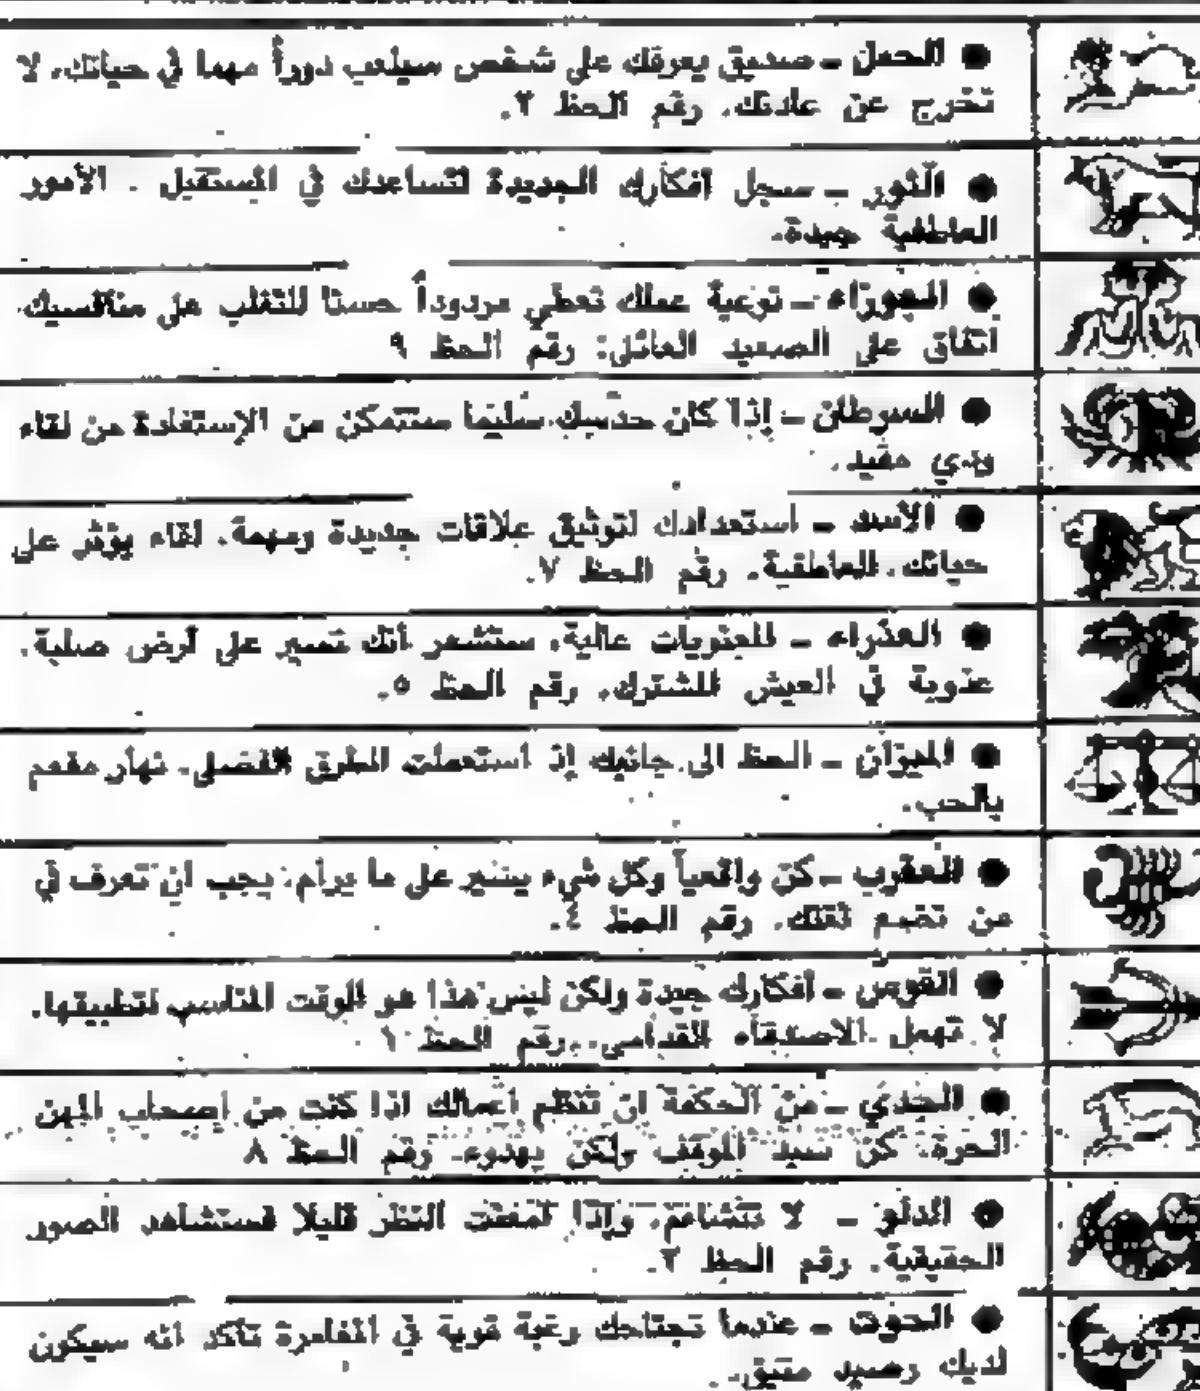 ● الحمل ـ صديق يعرفك على شخص سيلعب دوراً مهما في حياتك. لا
تخرج عن عادتك. رقم الحظ ٢.
● الثور ـ سجل افكارك الجديدة لتساعدك في المستقبل. الأمور
العاطفية جيدة.
● الجوزاء ـ نوعية عملك تعطي مردوداً حسنا للتغلب على منافسيك.
اتفاق على الصعيد العائلي. رقم الحظ ٩
● السرطان ـ إذا كان حدسك سليما ستتمكن من الإستفادة من لقاء
ودي مفيد.
● الأسد ـ استعدادك لتوثيق علاقات جديدة ومهمة. لقاء يؤثر على
حياتك العاطفية. رقم الحظ ٧.
● العذراء ـ المعنويات عالية. ستشعر انك تسير على أرض صلبة.
عذوبة في العيش المشترك. رقم الحظ ٥.
● الميزان ـ الحظ الى جانبك إذ استعملت الطرق الفضلى. نهار مفعم
بالحب.
● العقرب ـ كن واقعياً وكل شيء يسير على ما يرام. يجب ان تعرف في
من تضع ثقتك. رقم الحظ ٤.
● القوس ـ افكارك جيدة ولكن ليس هذا هو الوقت المناسب لتطبيقها.
لا تهمل الاصدقاء القدامى. رقم الحظ ١
● الجدي ـ من الحكمة ان تنظم اعمالك اذا كنت من اصحاب المهن
الحرة. كن سيد الموقف ولكن بهدوء. رقم الحظ ٨
● الدلو ـ لا تتشاءم. وإذا أمعنت النظر قليلا فستشاهد الصور
الحقيقية. رقم الحظ
● الحوت ـ عندما تجتاحك رغبة قوية في المغامرة تأكد انه سيكون
لديك رصيد